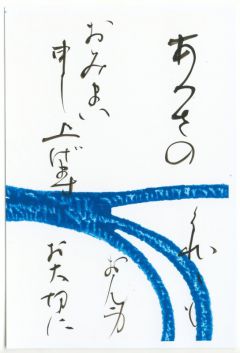 あつさの
おみまい
申し上げます
おん身
お大切に